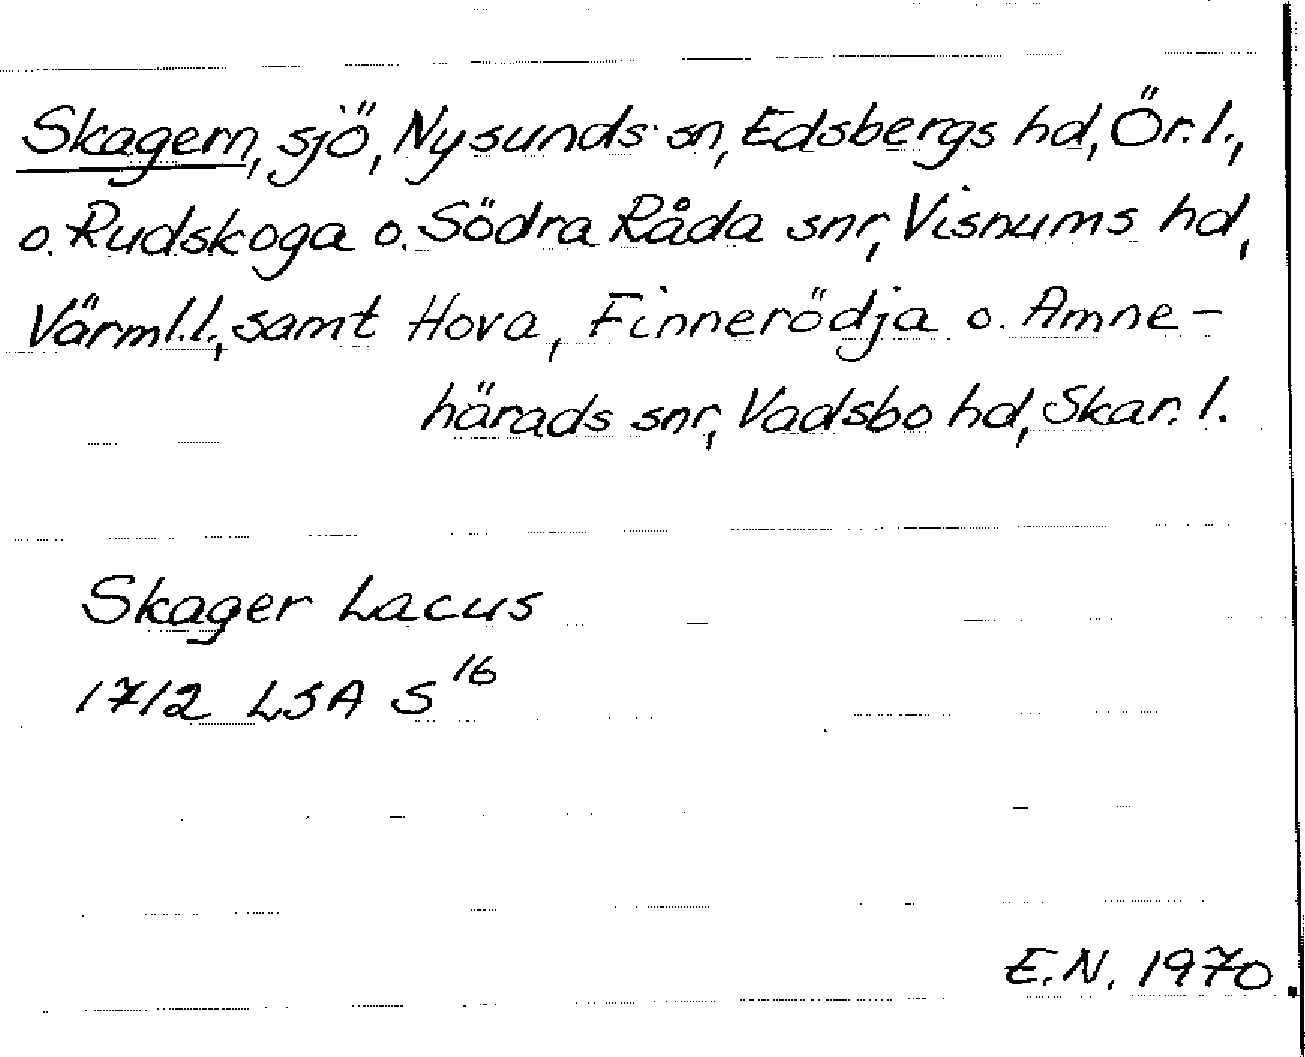 Skagern, sjö, Nysunds sn, Edsbergs hd, Ör. l.,
o. Rudskoga o. Södra Råda snr, Visnums hd,
Värml. l., samt Hova, Finnerödja o. Amne-
härads snr, Vadsbo hd, Skar. l.
Skager Lacus
1712 LSA S 16
E.N. 1970.